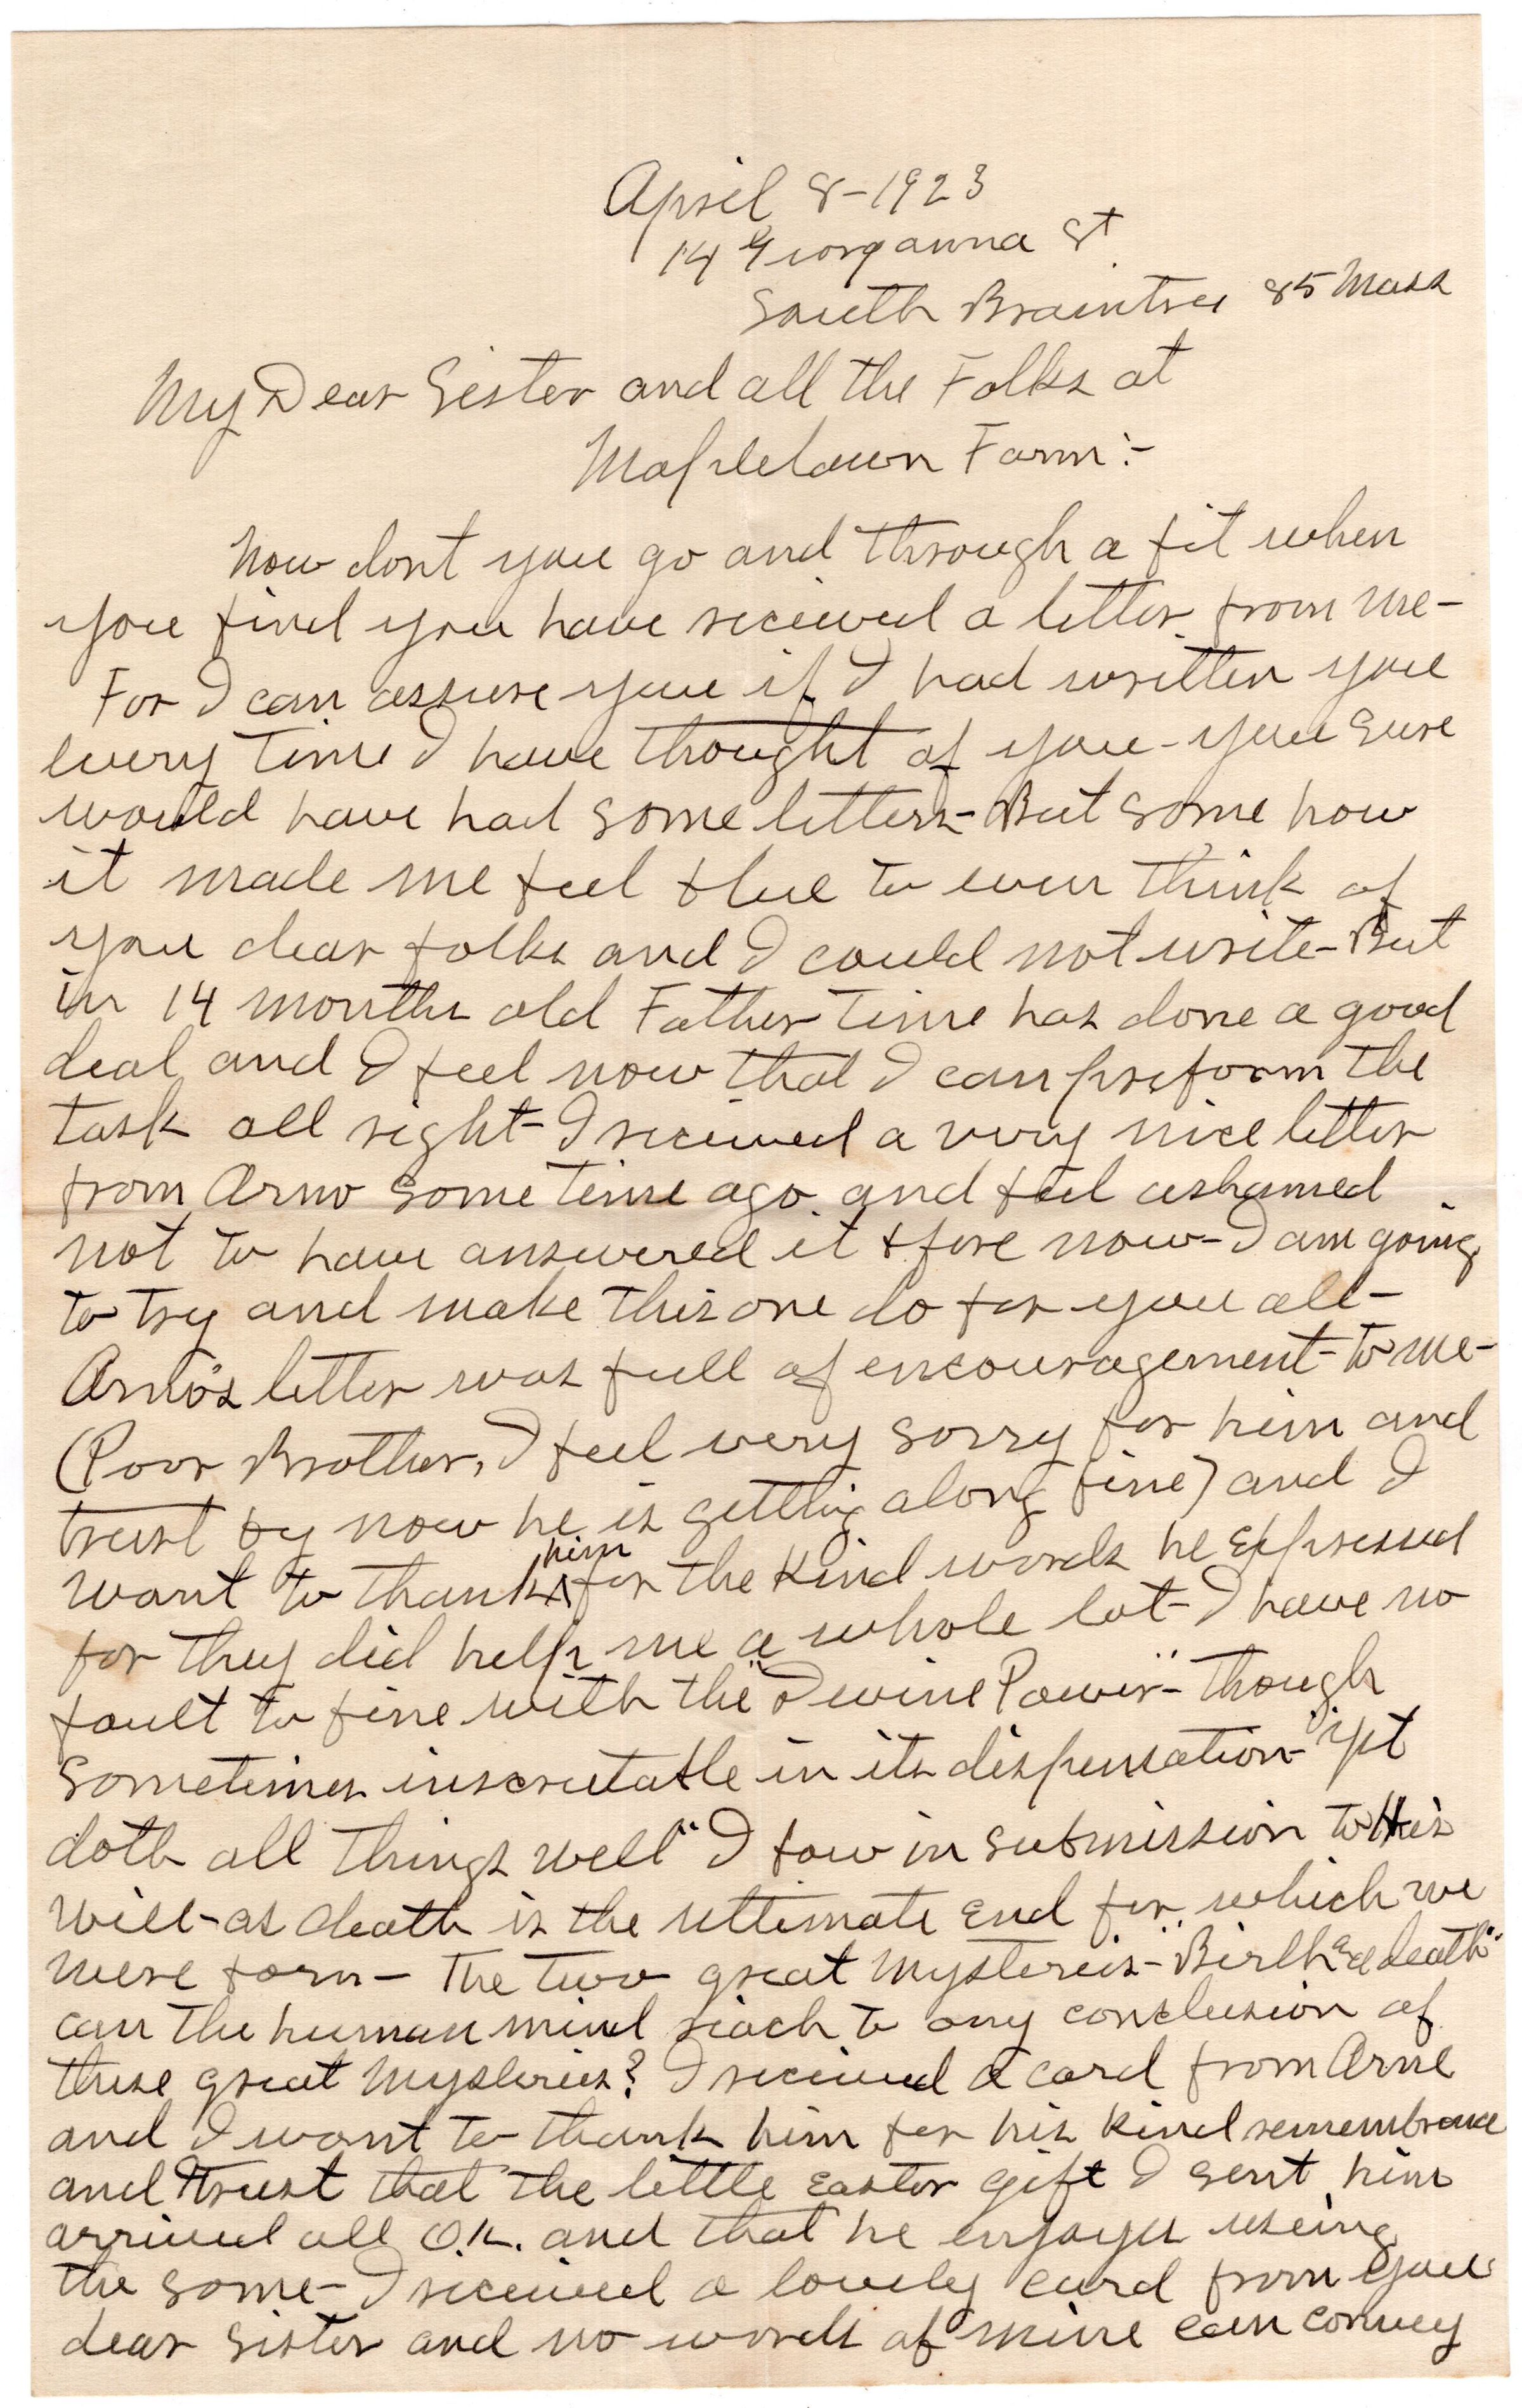 April 8-1923
14 Georganna St
South Braintree 85 Mass
My Dear Sister and all the Folks at
Maplelawn Farm:-
Now dont you go and through a fit when
you find you have recieved a letter from me-
For I can assure you if I had written you
every time I have thought of you - you sure
would have had some letters - But some how
it made me feel blue to even think of
you dear folks and I could not write - But
in 14 months old Father Time has done a good
deal and I feel now that I can preform the
task all right - I recieved a very nice letter
from Arno some time ago and feel ashamed
not to have answered it bfore now - I am going
to try and make this one do for you all -
Arno's letter was full of encouragement - to me -
(Poor Brother, I feel very sorry for him and
trust by now he is getting along fine) and I
want to thank him for the kind words he expressed
for they did help me a whole lot - I have no
fault to fine with the "Divine Power" - though
sometimes inscrutable in its dispensation "yet
doth all things well" I bow in submission to His
will - as death is the ultimate end for which we
were born - The two great mysteries - "Birth & death"
can the human mind reach to any conclusion of
these great mysteries? I recieved a card from Arne
and I want to thank him for his kind remembrance
and trust that the little Easter gift I sent him
arrived all O.K. and that he enjoys useing
the same - I recieved a lovely card from you
dear sister and no words of mine can convey